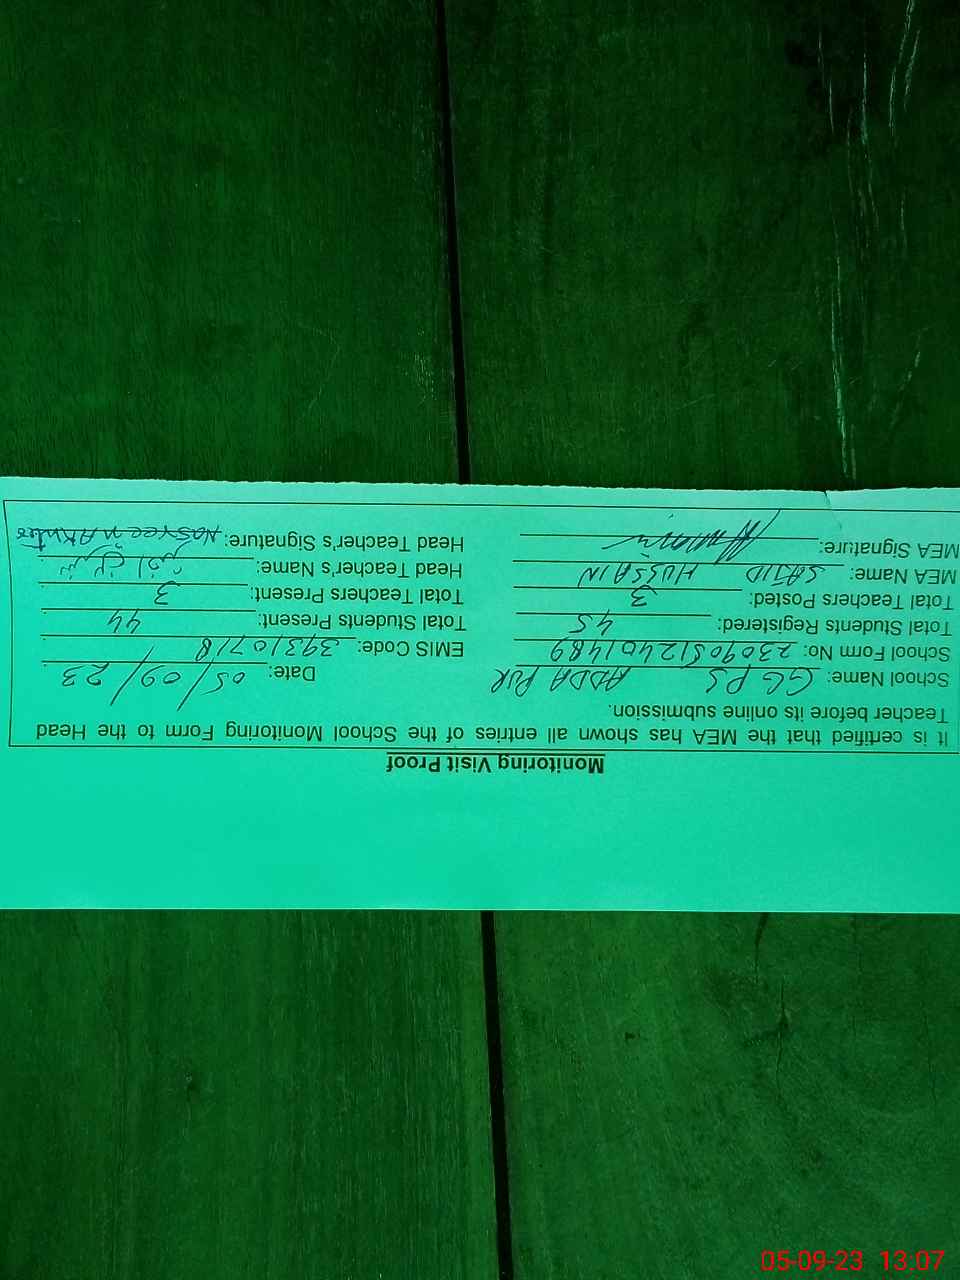 Monitoring Visit Proof
It is certified that the MEA has shown all entries of the School Monitoring Form to the Head
Teacher before its online submission.
School Name: GGPS ADDA PUR Date: 05/09/23
School Form No: 23090512401489 EMIS Code: 39310718
Total Students Registered: 45 Total Students Present: 44
Total Teachers Posted: 3 Total Teachers Present: 3
MEA Name: SAJID HUSSAIN Head Teacher's Name:
MEA Signature: Head Teacher's Signature:
05-09-23 13.07